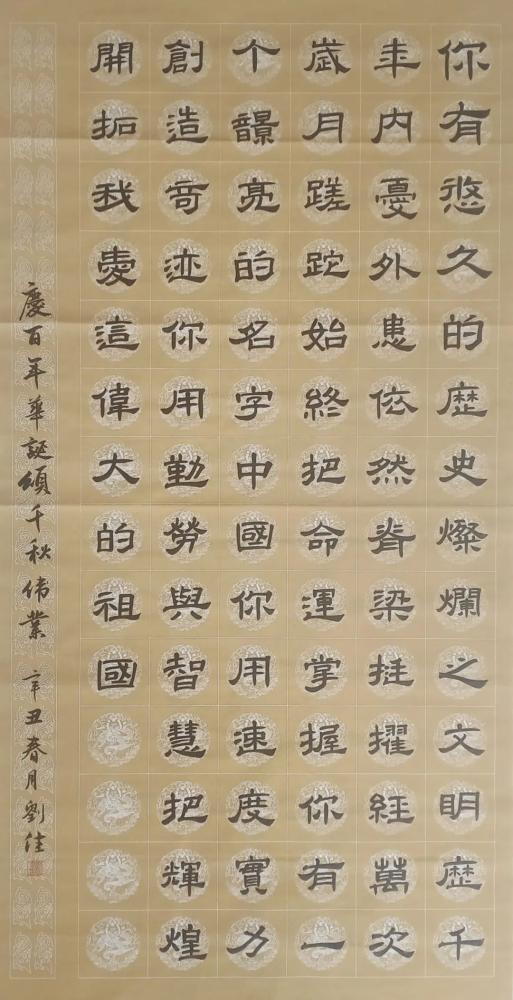 你有悠久的歷史燦爛之文明歷千
年内憂外患依然脊梁挺擢經萬次
歲月蹉跎始終把命運掌握你有一
个響亮的名字中國你用速度實力
創造奇迹你用勤勞與智慧把輝煌
開拓我愛這偉大的祖國
慶百年華誕頌千秋偉業 辛丑春月劉佳